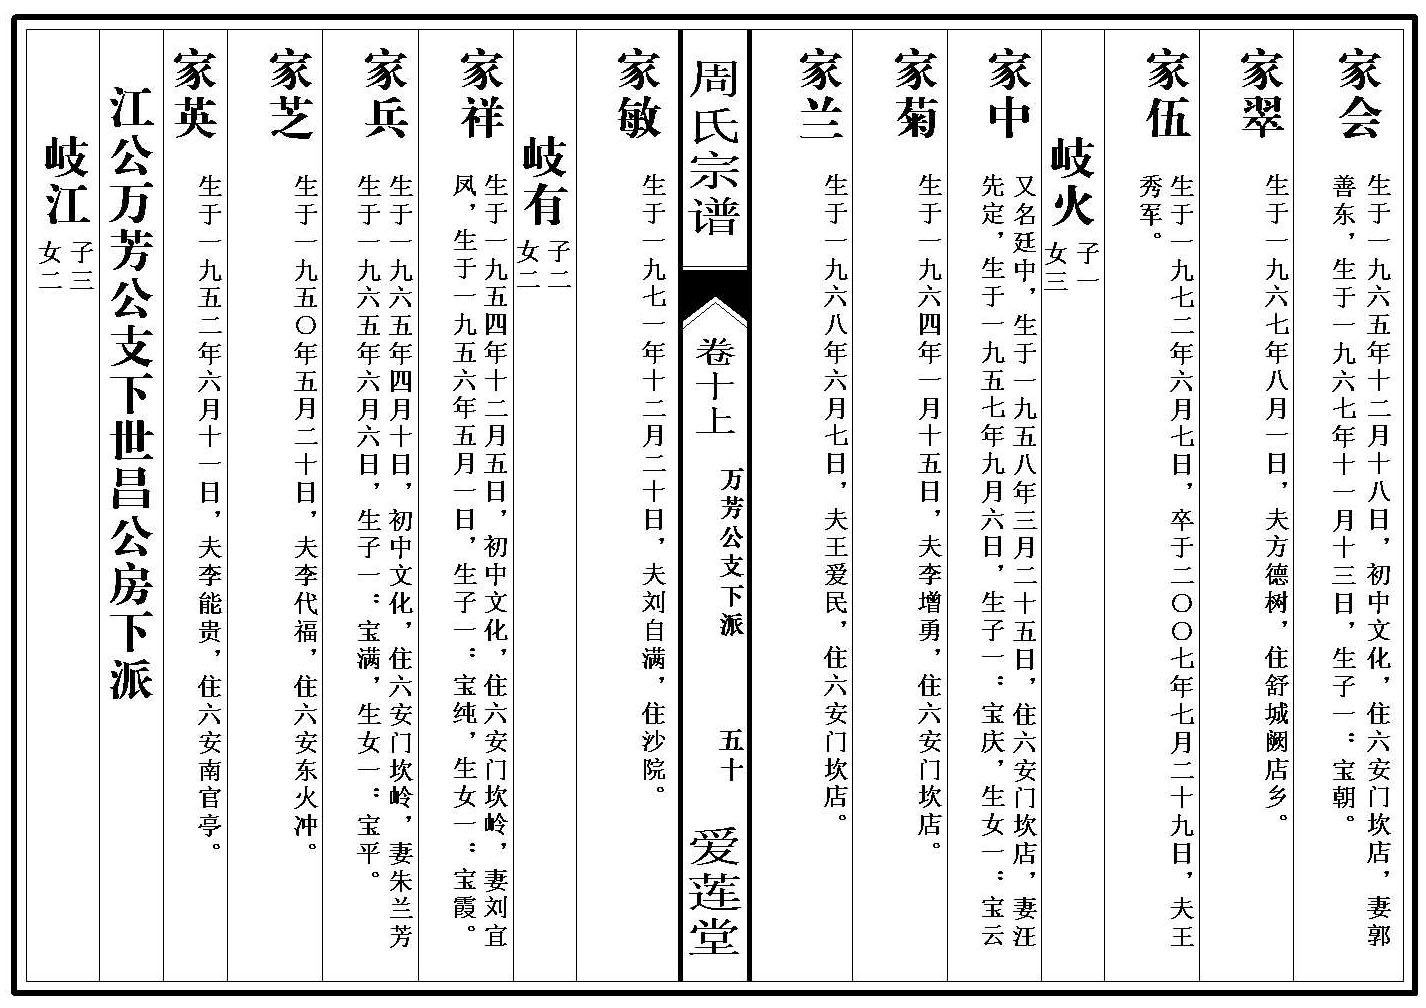 家会
生于一九六五年十二月十八日，初中文化，住六安门坎店，妻郭
善东，生于一九六七年十一月十三日，生子一：宝朝。
家翠
生于一九六七年八月一日，夫方德树，住舒城阙店乡。
家伍
生于一九七二年六月七日，卒于二〇〇七年七月二十九日，夫王
秀军。
岐火
子一
女三
家中
又名廷中，生于一九五八年三月二十五日，住六安门坎店，妻汪
先定，生于一九五七年九月六日，生子一：宝庆，生女一：宝云
家菊
生于一九六四年一月十五日，夫李增勇，住六安门坎店。
家兰
生于一九六八年六月七日，夫王爱民，住六安门坎店。
周氏宗谱
卷十上
万芳公支下派
五十
爱莲堂
家敏
生于一九七一年十二月二十日，夫刘自满，住沙院。
岐有
子二
女二
家祥
生于一九五四年十二月五日，初中文化，住六安门坎岭，妻刘宜
凤，生于一九五六年五月一日，生子一：宝纯，生女一：宝霞。
家兵
生于一九六五年四月十日，初中文化，住六安门坎岭，妻朱兰芳
生于一九六五年六月六日，生子一：宝满，生女一：宝平。
家芝
生于一九五〇年五月二十日，夫李代福，住六安东火冲。
家英
生于一九五二年六月十一日，夫李能贵，住六安南官亭。
江公万芳公支下世昌公房下派
岐江
子三
女二